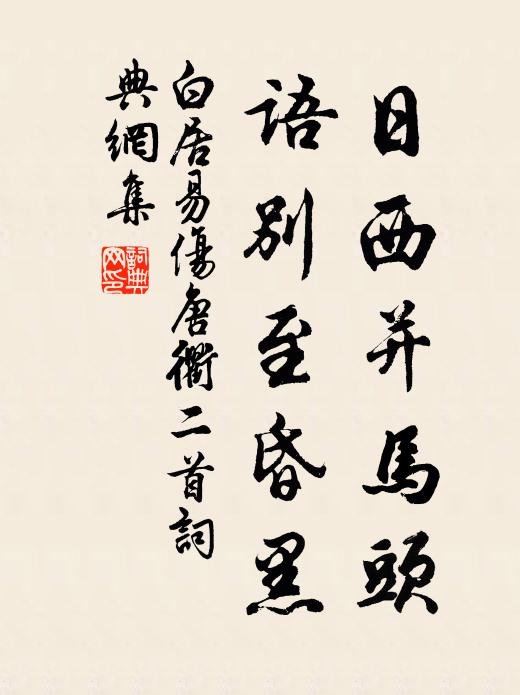 日西并馬頭
語別至昏黑
白居易傷唐衢二首詞
典網集
詞典网印